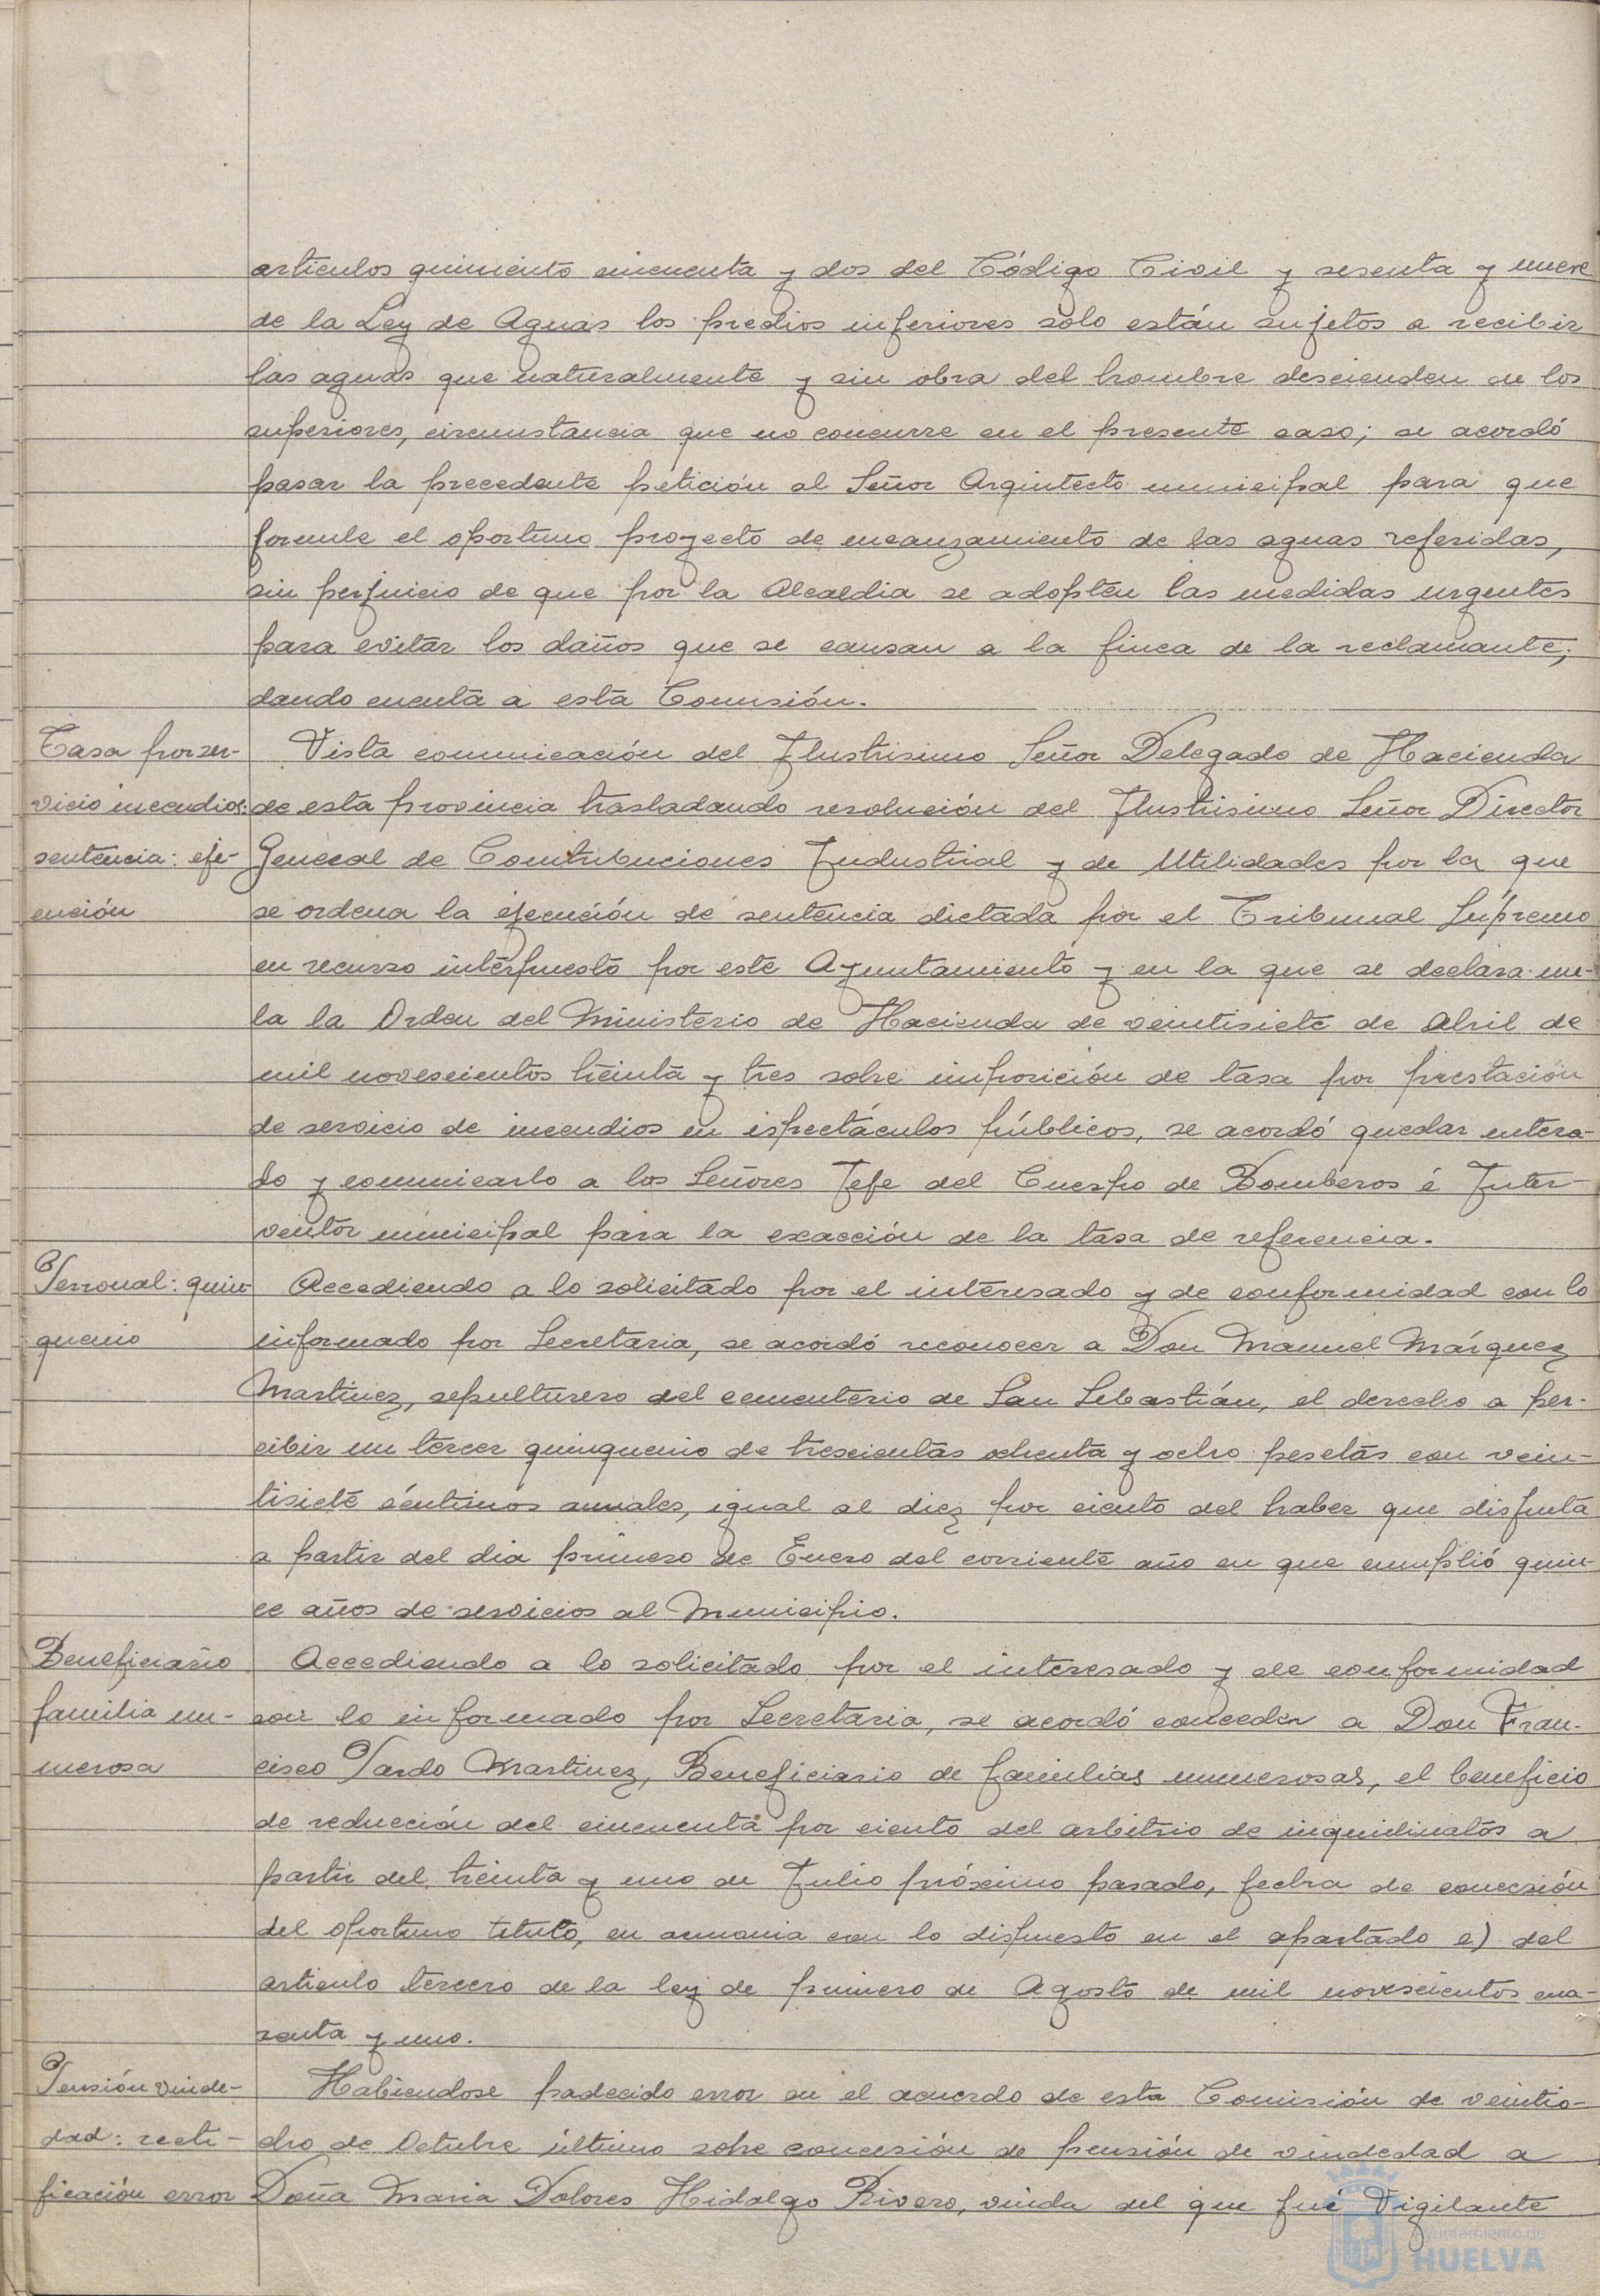 articulos quiniento cincuenta y dos del Código Civil y sesenta y nueve
de la Ley de Aguas los predios inferiores solo están sujetos a recibir
las aguas que naturalmente y sin obra del hombre descienden de los
superiores, circunstancia que no concurre en el presente caso; se acordó
pasar la precedente petición al Señor Arquitecto municipal para que
formule el oportuno proyecto de encauzamiento de las aguas referidas,
sin perjuicio de que por la Alcaldia se adopten las medidas urgentes
para evitar los daños que se causan a la finca de la reclamante;
dando cuenta a esta Comisión.
Tasa por ser-
vicio incendios:
sentencia: eje-
cución
Vista comunicación del Ilustrisimo Señor Delegado de Hacienda
de esta provincia trasladando resolución del Ilustrisimo Señor Director
General de Contribuciones Industrial y de Utilidades por la que
se ordena la ejecución de sentencia dictada por el Tribunal Súpremo
en recurso interpuesto por este Ayuntamiento y en la que se declara nu-
la la Orden del Ministerio de Hacienda de veintisiete de Abril de
mil novescientos treinta y tres sobre imposición de tasa por prestación
de servicio de incendios en espectáculos públicos, se acordó quedar entera-
do y comunicarlo a los Señores Jefe del Cuerpo de Bomberos é Inter-
ventor municipal para la exacción de la tasa de referencia.
Personal: quin-
quenio
Accediendo a lo solicitado por el interesado y de conformidad con lo
informado por Secretaria, se acordó reconocer a Don Manuel Márquez
Martinez, sepulturero del cementerio de San Sebastián, el derecho a per-
cibir un tercer quinquenio de trescientas ochenta y ocho pesetas con vein-
tisiete céntimos anuales, igual al diez por ciento del haber que disfruta
a partir del dia primero de Enero del corriente año en que cumplió quin-
ce años de servicios al Municipio.
Beneficiario
familia nu-
merosa
Accediendo a lo solicitado por el interesado y de conformidad
con lo informado por Secretaria, se acordó conceder a Don Fran-
cisco Pardo Martinez, Beneficiario de familias numerosas, el beneficio
de reducción del cincuenta por ciento del arbitrio de inquilinatos a
partir del treinta y uno de Julio próximo pasado, fecha de concesión
del oportuno titulo, en armonia con lo dispuesto en el apartado e) del
articulo tercero de la ley de primero de Agosto de mil novescientos cua-
renta y uno.
Pensión viude-
dad: recti-
ficación error
Habiendose padecido error en el acuerdo de esta Comisión de veintio-
cho de Octubre último sobre concesión de pensión de viudedad a
Doña Maria Dolores Hidalgo Rivero, viuda del que fué Vigilante
Ayuntamiento de
HUELVA